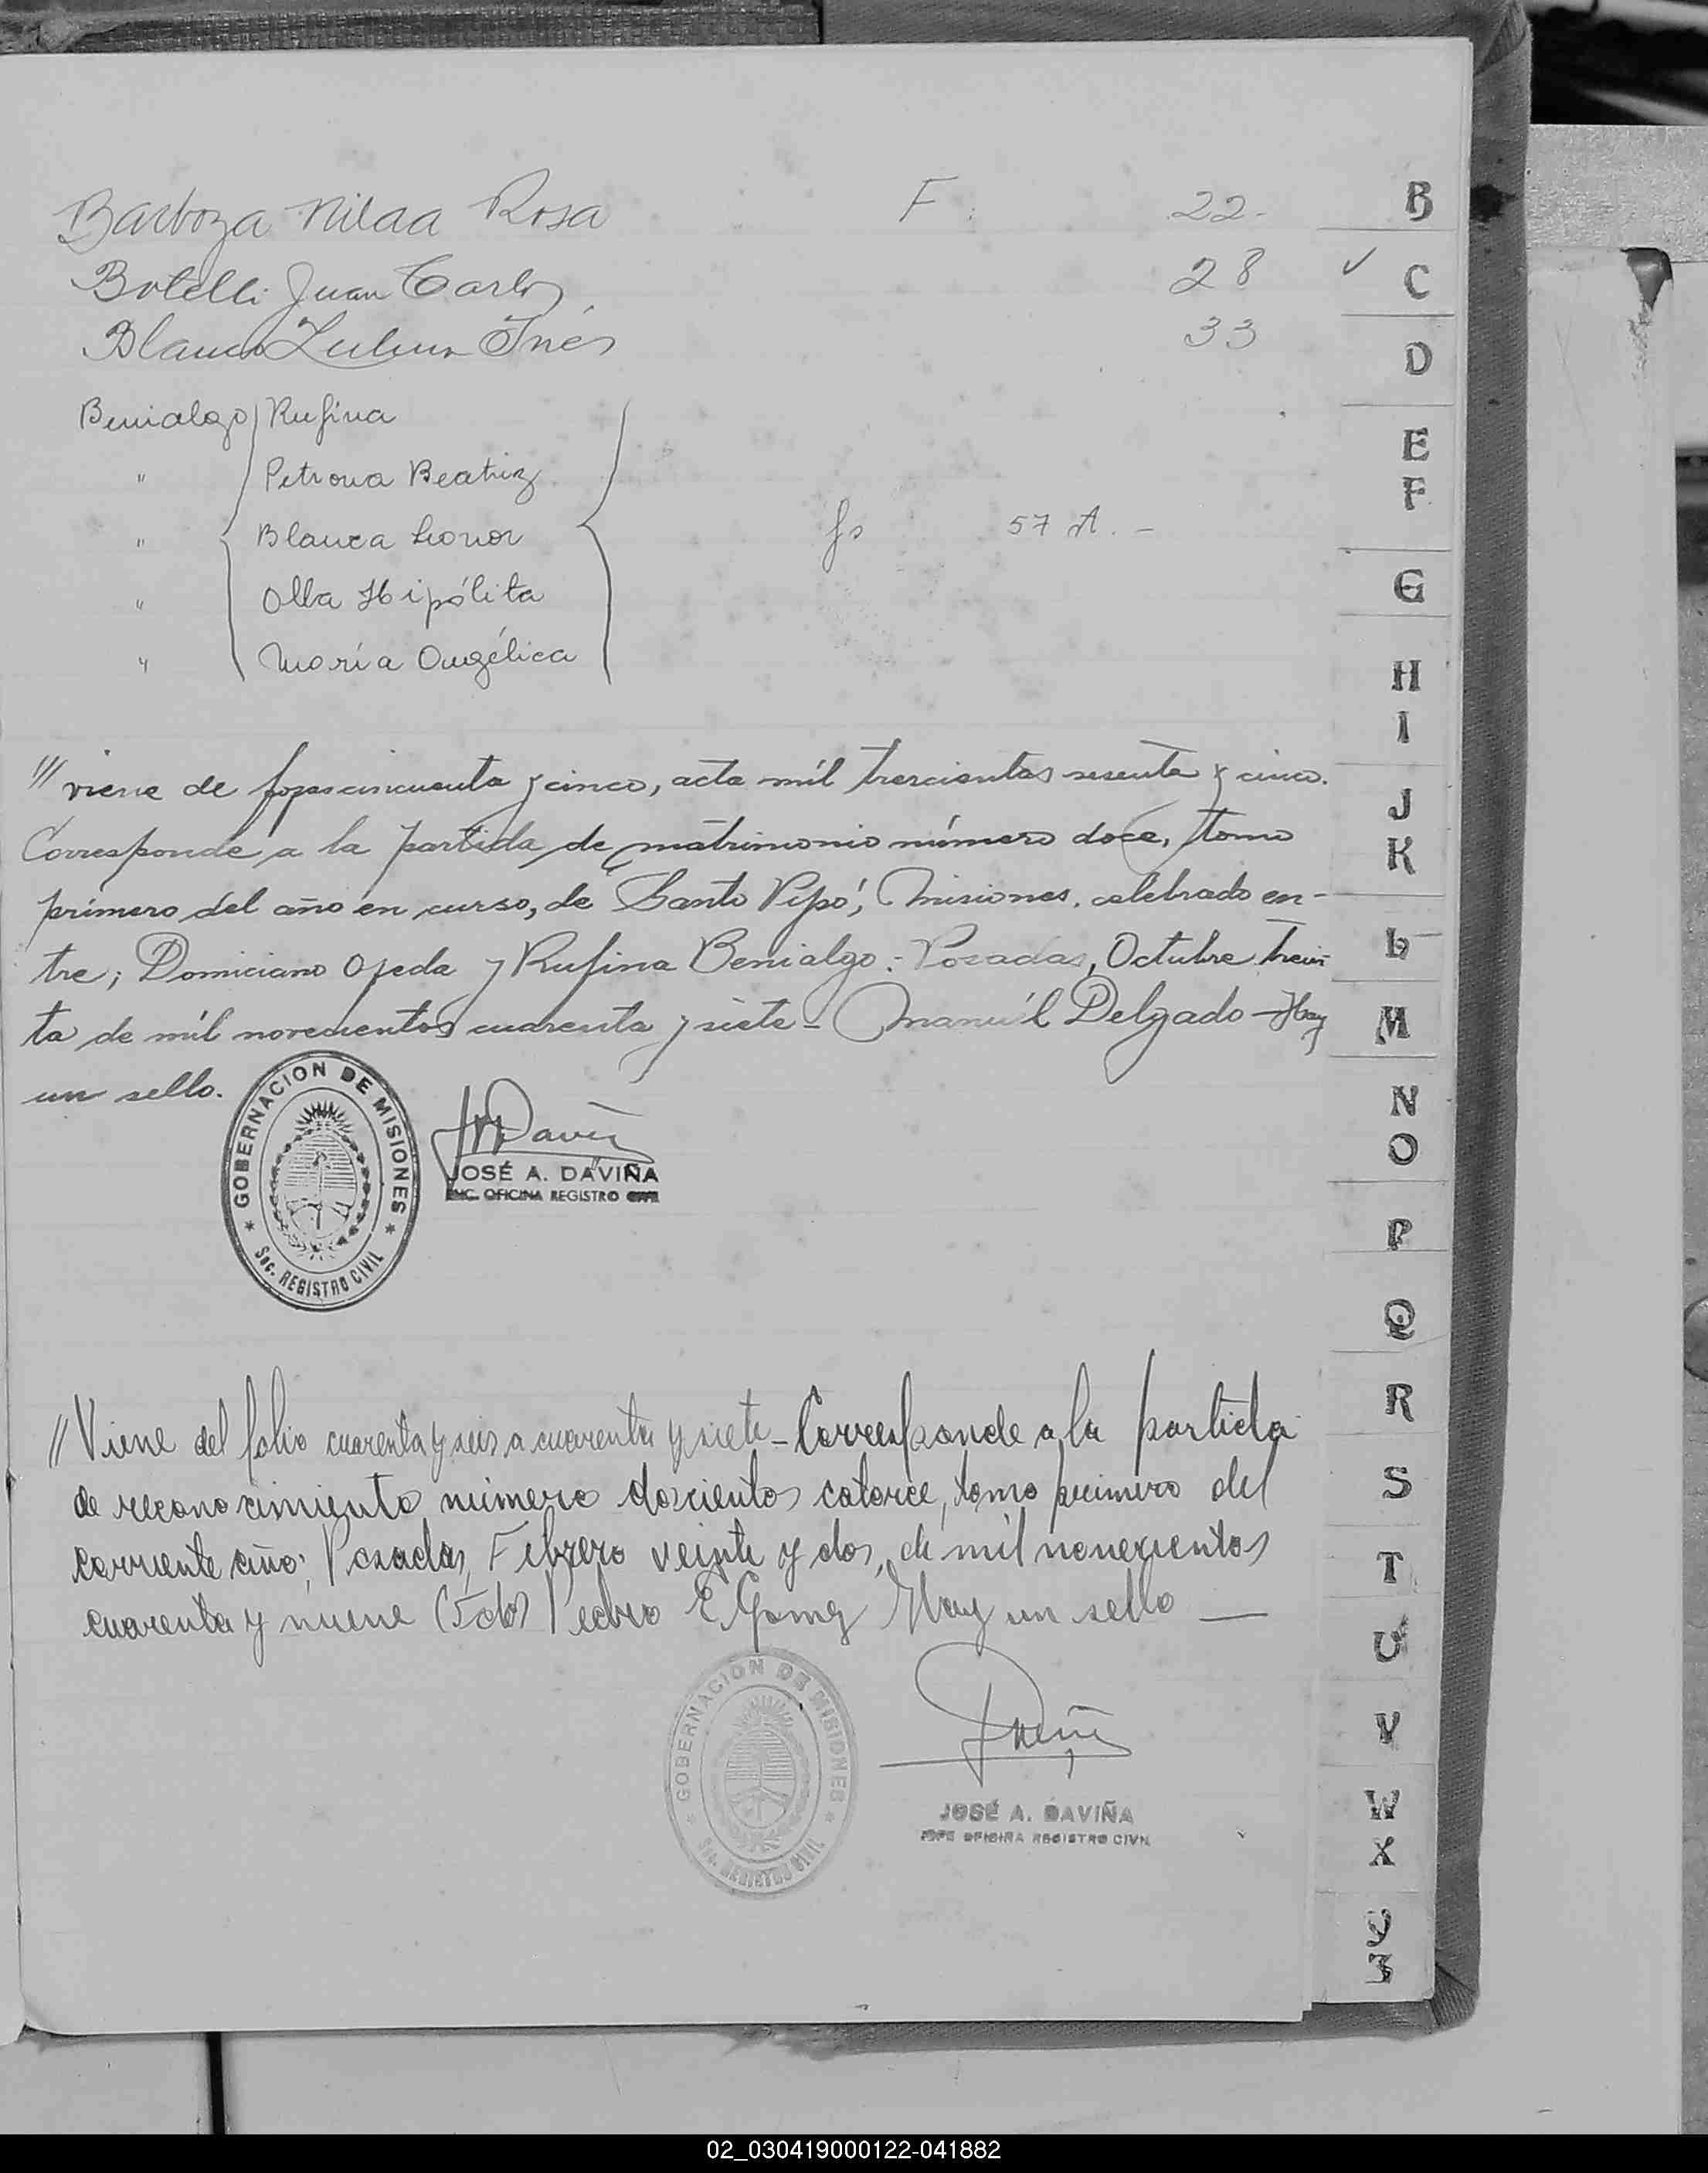 Barboza Nilda Rosa F. 22.-
Botelli Juan Carlos 28 ✓
Blanco Inés 33
Benialgo Rufina
" Petrona Beatriz
" Blanca Leonor fs 57 A. -
" Olba Hipólita
" María Angélica
/// viene de fojas cincuenta y cinco, acta mil trescientas sesenta y cinco.
Corresponde a la partida de matrimonio número doce, tomo
primero del año en curso, de Santo Pipó, Misiones. celebrado en-
tre; Domiciano Ojeda y Rufina Benialgo.- Posadas, Octubre trein
ta de mil novecientos cuarenta y siete- Manuél Delgado - Hay
un sello.
GOBERNACION DE MISIONES
Sec. REGISTRO CIVIL
JOSÉ A. DAVIÑA
ENC. OFICINA REGISTRO CIVIL
// Viene del folio cuarenta y seis a cuarenta y siete- Corresponde a la partida
de reconocimiento número doscientos catorce, tomo primero del
corriente año; Posadas, Febrero veinte y dos, de mil novecientos
cuarenta y nueve (Fdo) Pedro E Gomez Hay un sello —
GOBERNACION DE MISIONES
Sec. REGISTRO CIVIL
JOSÉ A. DAVIÑA
JEFE OFICINA REGISTRO CIVIL
B
C
D
E
F
G
H
I
J
K
L
M
N
O
P
Q
R
S
T
U
V
W
X
Y
Z
02_030419000122-041882